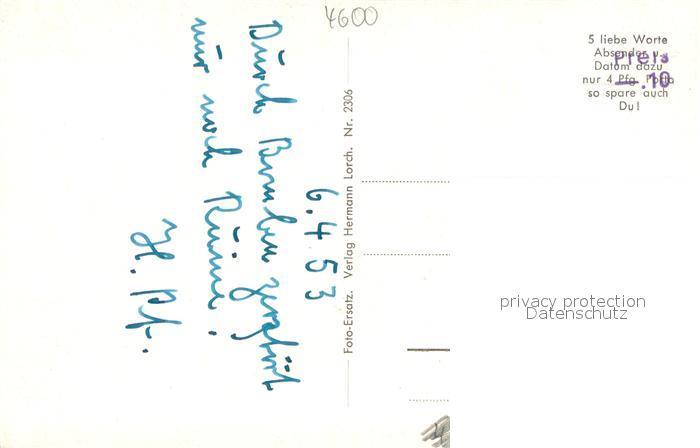 4600
5 liebe Worte
Absender u.
Datum dazu
nur 4 Pfg. Porto
so spare auch
Du!
Preis
—.10
6.4.53
Durch Bomben zerstört
nur noch Ruine!
H. Pf.
Foto-Ersatz. Verlag Hermann Lorch. Nr. 2306
privacy protection
Datenschutz